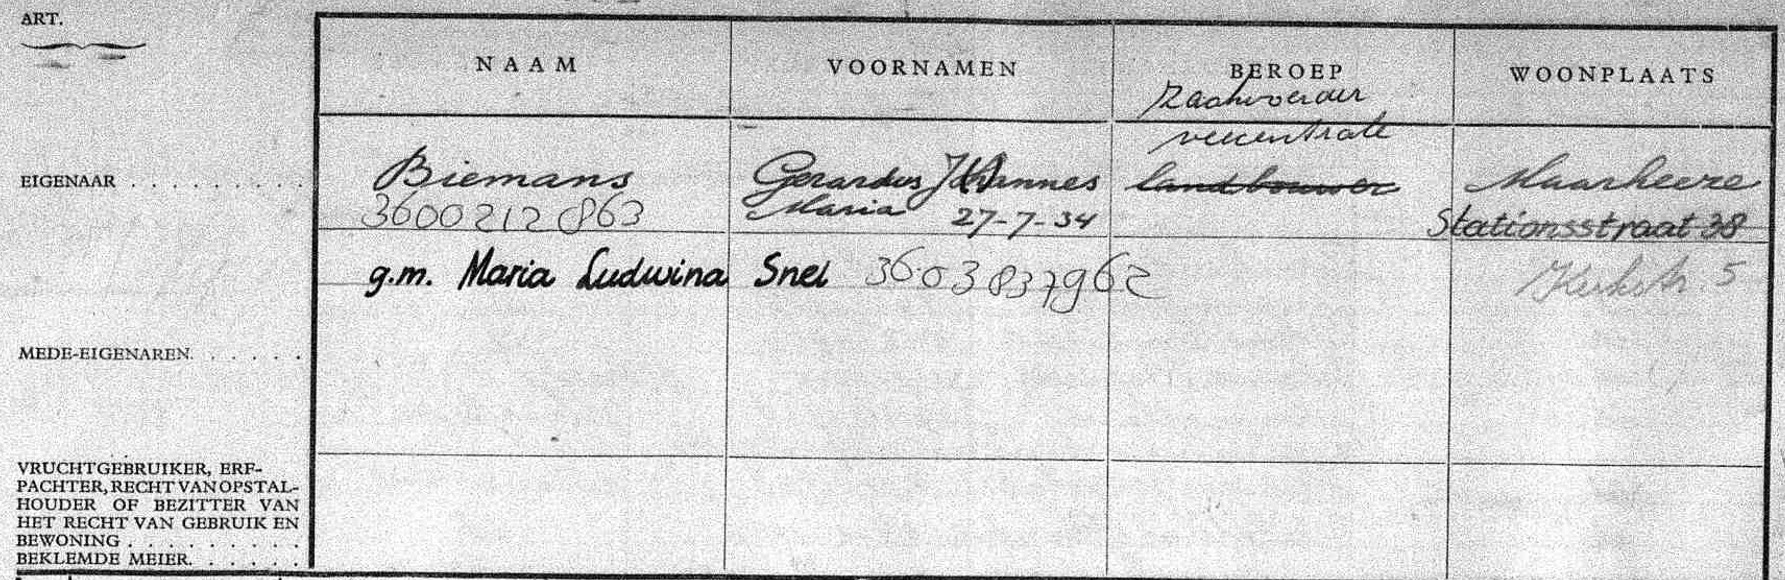 ART.
NAAM VOORNAMEN BEROEP WOONPLAATS
Zaakvoerder
veecentrale
EIGENAAR . . . . . . . . . Biemans Gerardus Johannes landbouwer Maarheeze
3600212863 Maria 27-7-34 Stationsstraat 38
g.m. Maria Ludwina Snel 3603837962 Kerkstr. 5
MEDE-EIGENAREN. . . . . .
VRUCHTGEBRUIKER, ERF-
PACHTER, RECHT VAN OPSTAL-
HOUDER OF BEZITTER VAN
HET RECHT VAN GEBRUIK EN
BEWONING . . . . . . . . .
BEKLEMDE MEIER. . . . . .